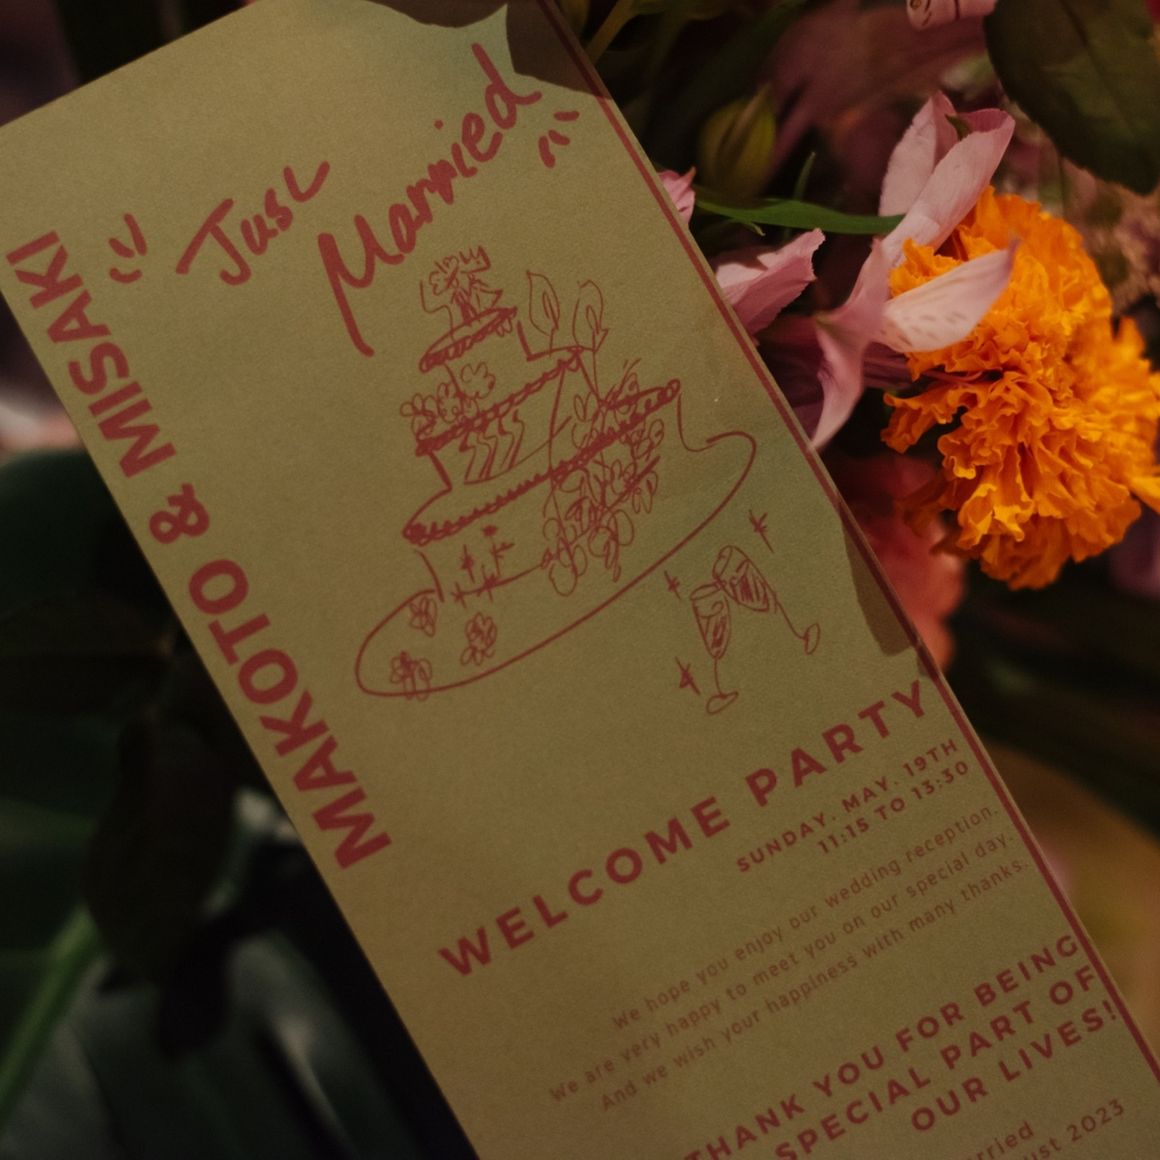 Just
Married
MAKOTO & MISAKI
WELCOME PARTY
SUNDAY. MAY. 19TH
11:15 TO 13:30
We hope you enjoy our wedding reception.
We are very happy to meet you on our special day.
And we wish your happiness with many thanks.
THANK YOU FOR BEING
SPECIAL PART OF
OUR LIVES!
2023